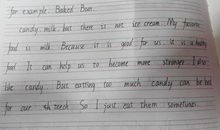 for example. Baked Ban.
candy. milk. but there is not ice cream. My favorite
food is milk. Because it is good for us. it is a healthy
food. It can help us to become more stronger. I also
like candy. But eatting too much candy can be bad
for our teech. So I just eat them sometimes.